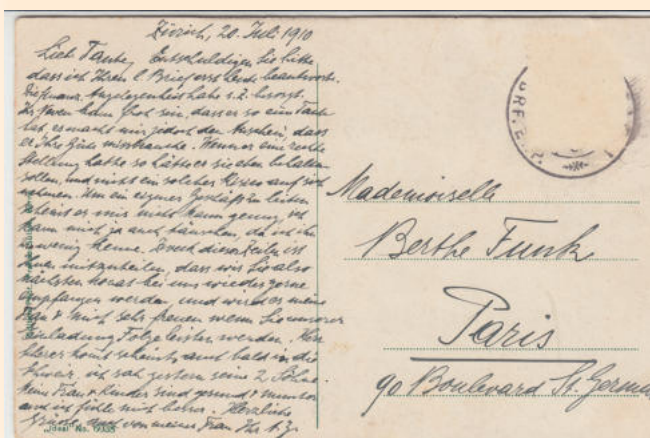 Zürich, 20. Juli 1910
Lieb Tante, Entschuldigen Sie bitte
dass ich Ihren l. Brief erst heute beantworte.
Angelegenheit habe s. Z. besorgt.
Ihr Neven kann froh sein, dass er so eine Tante
hat, es macht mir jedoch den Anschein, dass
er Ihre Güte missbrauche. Wenn er eine rechte
Stellung hatte so hätte er sie eben behalten
sollen, und nicht ein solches Risico auf sich
nehmen. Um ein eigenes Geschäft zu leiten
scheint er mir nicht genug, ich
kann mich ja auch täuschen, da ich ihn
zu wenig kenne. Zweck dieser Zeilen ist
Ihnen mitzuteilen, dass wir Sie also
nächsten Monat bei uns wieder gerne
empfangen werden, und wird es meine
Frau & mich sehr freuen wenn Sie unserer
Einladung Folge leisten werden. Herr
kommt scheints auch bald in die
Schweiz, ich sah gestern seine 2 Söhne.
Frau & Kinder sind gesund & munter
und ich fühle mich besser. Herzliche
Grüsse auch von meiner Frau Ihr
Mademoiselle
Berthe Funk
Paris
90 Boulevard St. Germain